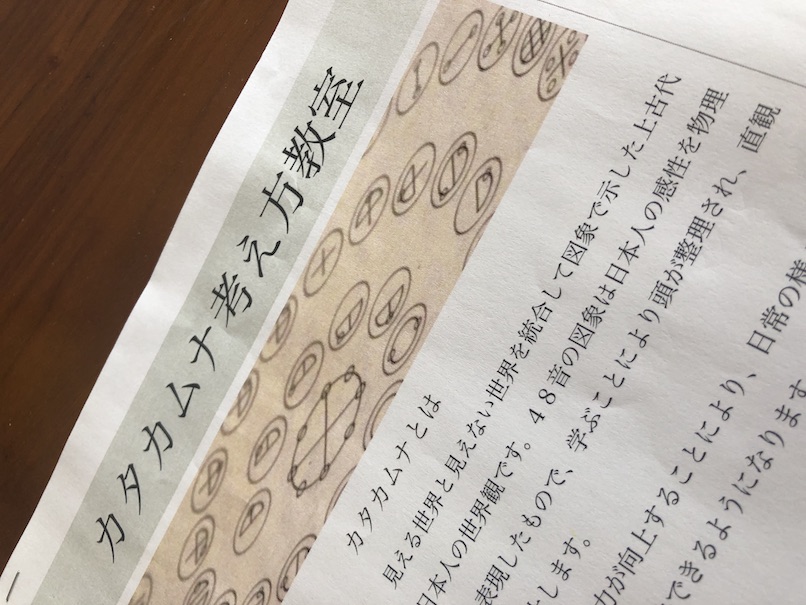 カタカムナ考え方教室
カタカムナとは
見える世界と見えない世界を統合して図象で示した上古代
日本人の世界観です。48音の図象は日本人の感性を物理
表現したもので、学ぶことにより頭が整理され、直観
します。
力が向上することにより、日常の様
できるようになります